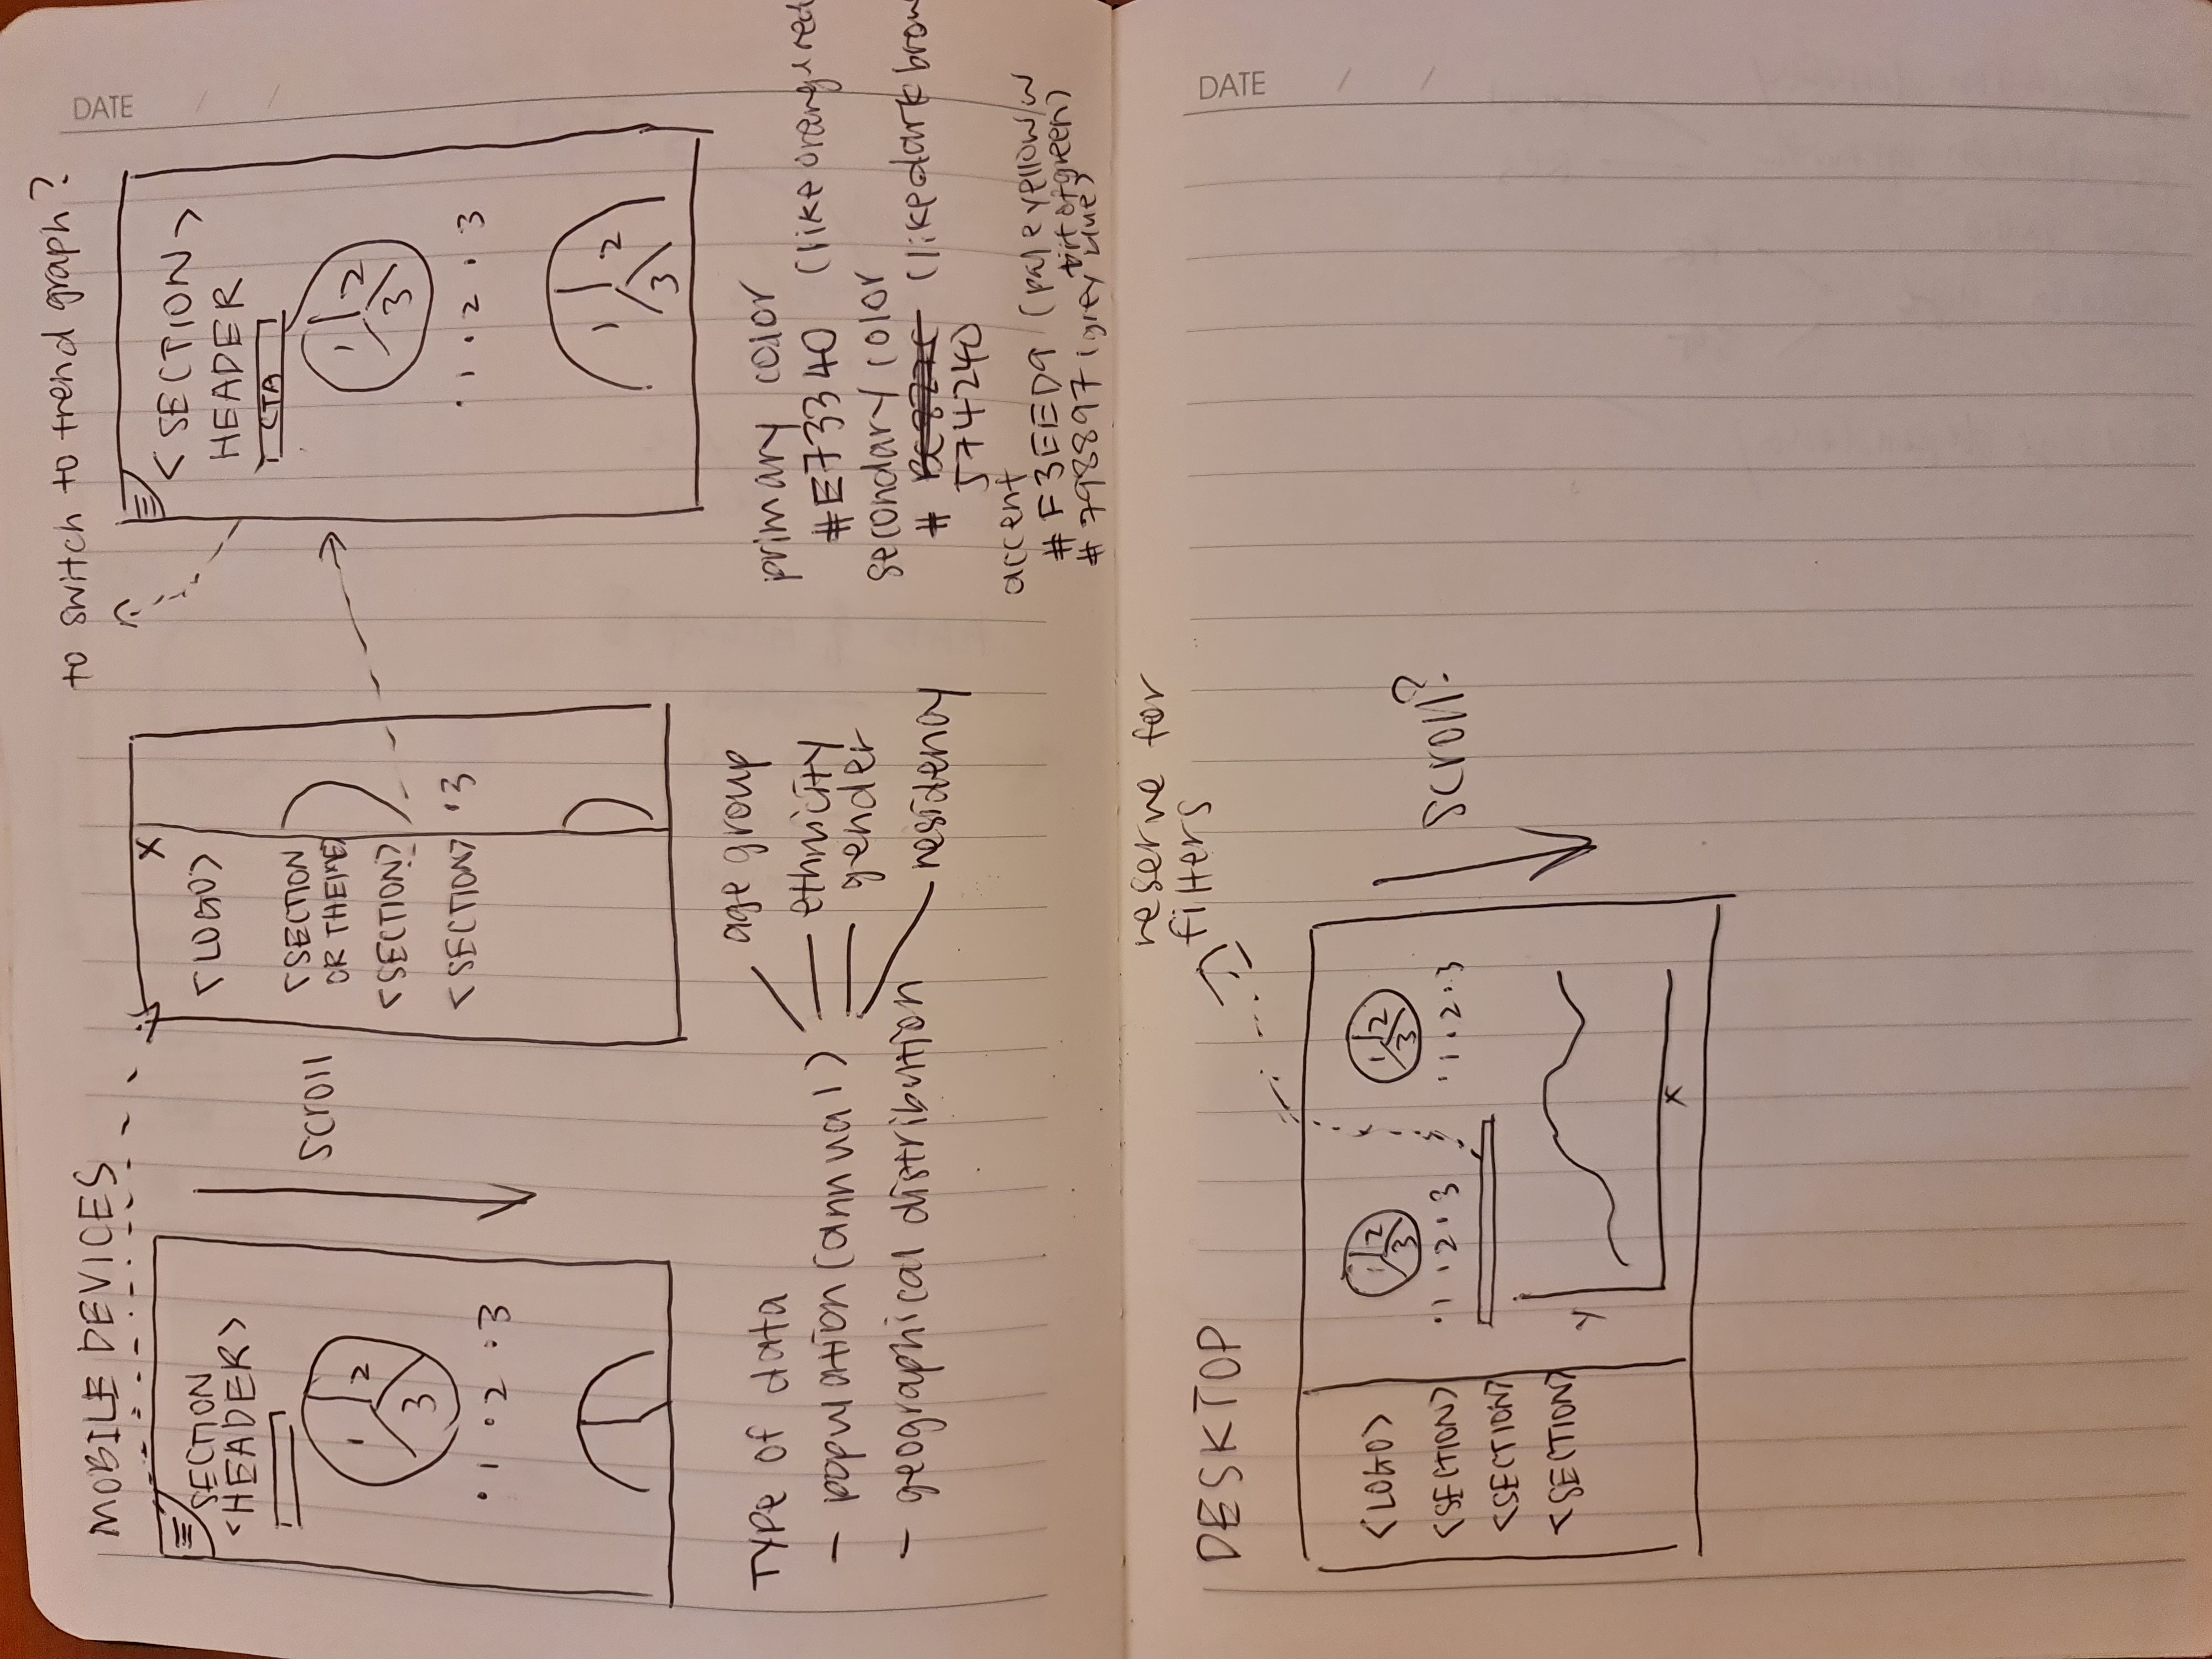 MOBILE DEVICES
to switch to trend graph?
DATE
SECTION
<HEADER>
1 2
3
· 1 · 2 · 3
scroll
X
<LOGO>
<SECTION
OR THEME>
<SECTION>
<SECTION> · 3
<SECTION>
HEADER
CTA
1 2
3
· 1 · 2 · 3
1 2
3
TYPE of data
- population (annual)
- geographical distribution
age group
ethnicity
gender
residency
primary color
#E73340 (like orangered
secondary color
# (like dark brow
574240
accent
#F3EED9 (pale yellow/w
bit of green)
#798897 (grey blue)
reserve for
filters
DESKTOP
DATE
<LOGO>
<SECTION>
<SECTION>
<SECTION>
1 2
3
· 1 · 2 · 3
1 2
3
· 1 · 2 · 3
Y
X
scroll?